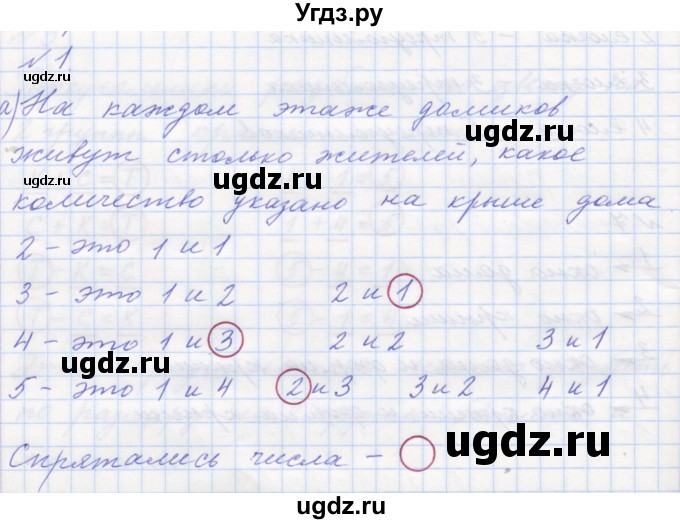 Угдз.ру
№1
а) На каждом этаже домиков
живут столько жителей, какое
количество указано на крыше дома
2 - это 1 и 1
3 - это 1 и 2 2 и 1
4 - это 1 и 3 2 и 2 3 и 1
5 - это 1 и 4 2 и 3 3 и 2 4 и 1
Спрятались числа -
ugdz.ru
ugdz.ru
ugdz.ru
ugdz.ru
ugdz.ru
ugdz.ru
ugdz.ru
ugdz.ru
ugdz.ru
ugdz.ru